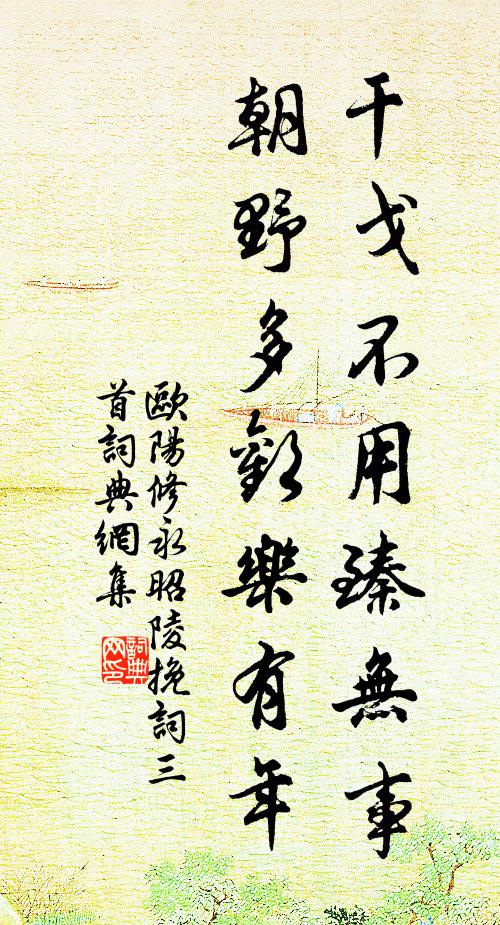 干戈不用臻無事
朝野多歡樂有年
歐陽修永昭陵挽詞三
首詞典網集
詞典
网印